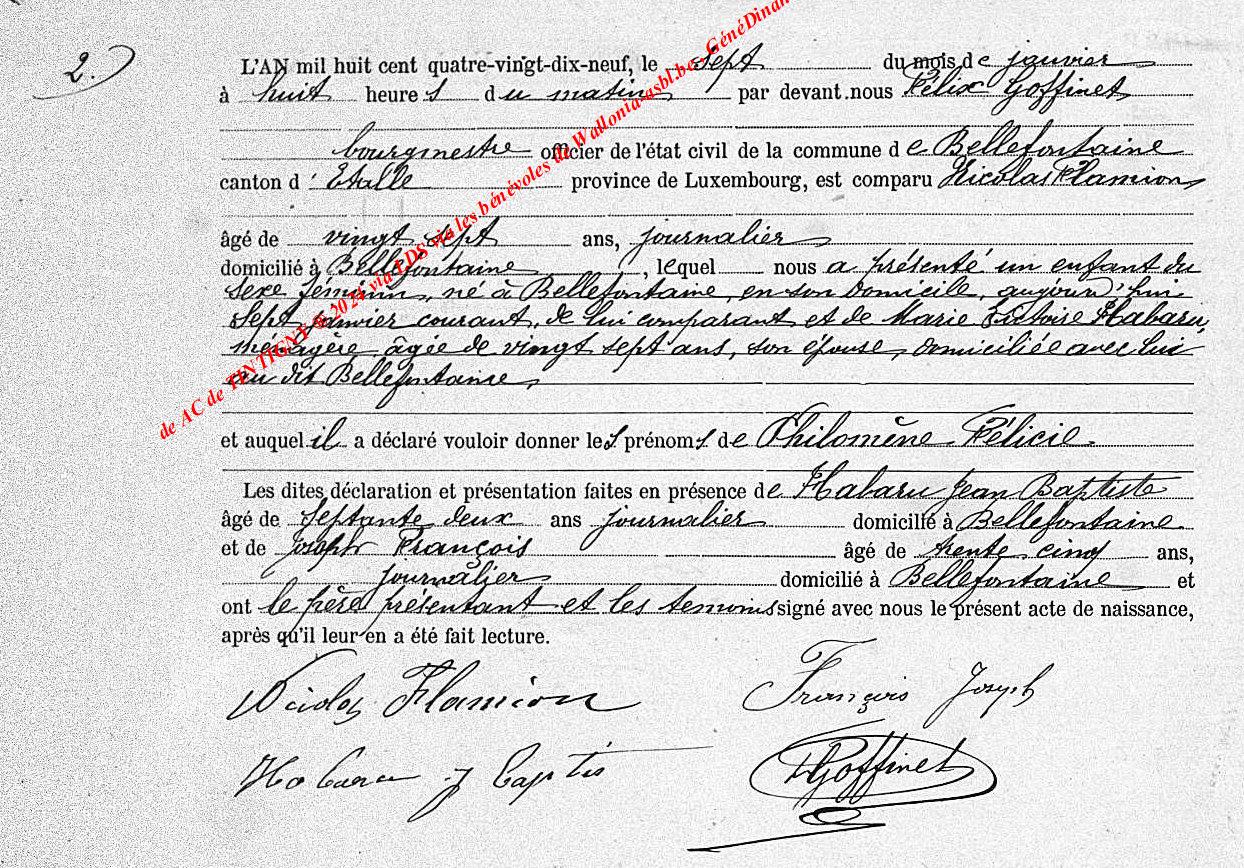 2.
L'AN mil huit cent quatre-vingt-dix-neuf, le sept du mois de janvier
à huit heures du matin par devant nous Félix Goffinet
bourgmestre officier de l'état civil de la commune de Bellefontaine
canton d'Etalle province de Luxembourg, est comparu Nicolas Flamion
âgé de vingt sept ans, journalier
domicilié à Bellefontaine, lequel nous a présenté un enfant du
sexe féminin, né à Bellefontaine, en son domicile, aujourd'hui
sept janvier courant, de lui comparant et de Marie Victoire Habaru,
ménagère âgée de vingt sept ans, son épouse, domiciliée avec lui
au dit Bellefontaine,
et auquel il a déclaré vouloir donner les prénoms de Philomène Félicie.
Les dites déclaration et présentation faites en présence de Habaru Jean Baptiste
âgé de septante deux ans journalier domicilié à Bellefontaine
et de Joseph François âgé de trente cinq ans,
journalier domicilié à Bellefontaine et
ont le père présentant et les temoins signé avec nous le présent acte de naissance,
après qu'il leur en a été fait lecture.
Nicolas Flamion François Joseph
Habaru J Baptis Goffinet
de AC de TINTIGNY © 2024 via LDS via les bénévoles de Wallonia-asbl.be - GénéDinan